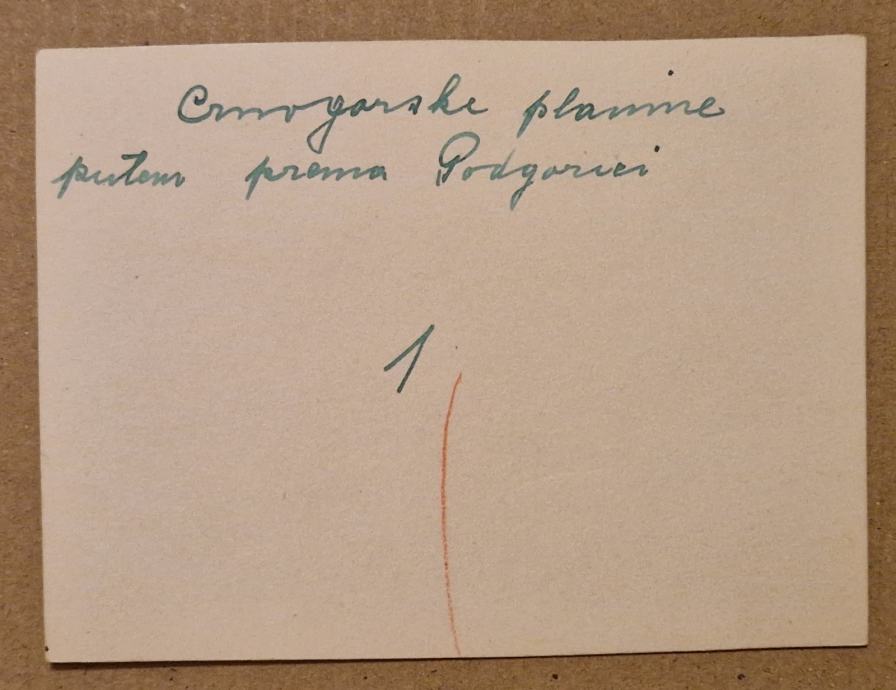 Crnogorske planine
putem prema Podgorici
1